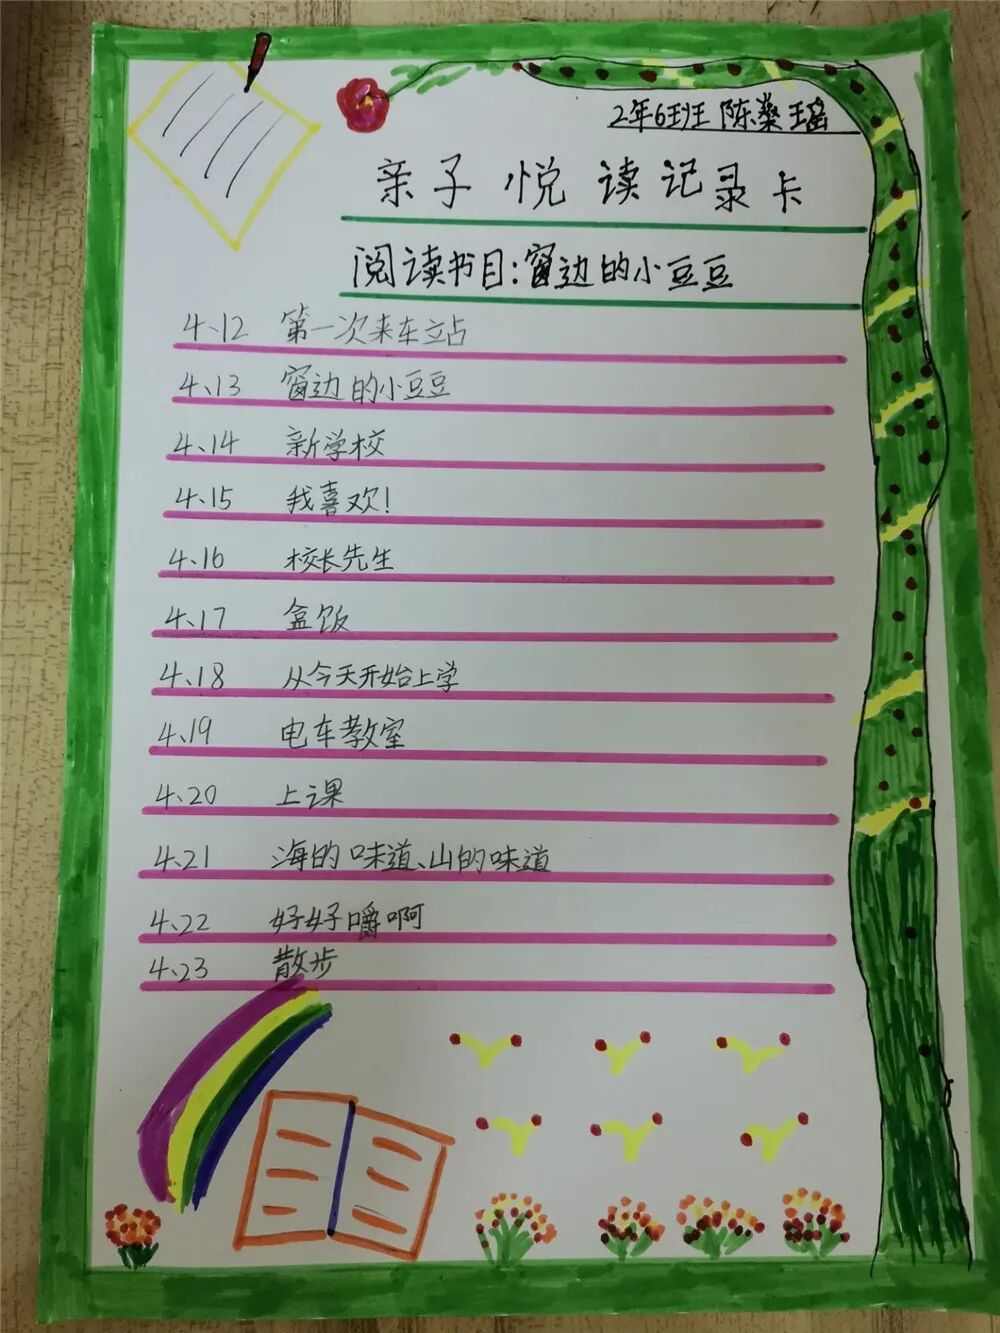 2年6班 陈燊瑶
亲子悦读记录卡
阅读书目:窗边的小豆豆
4、12 第一次来车站
4、13 窗边的小豆豆
4、14 新学校
4、15 我喜欢!
4、16 校长先生
4、17 盒饭
4、18 从今天开始上学
4、19 电车教室
4、20 上课
4、21 海的味道、山的味道
4、22 好好嚼啊
4、23 散步